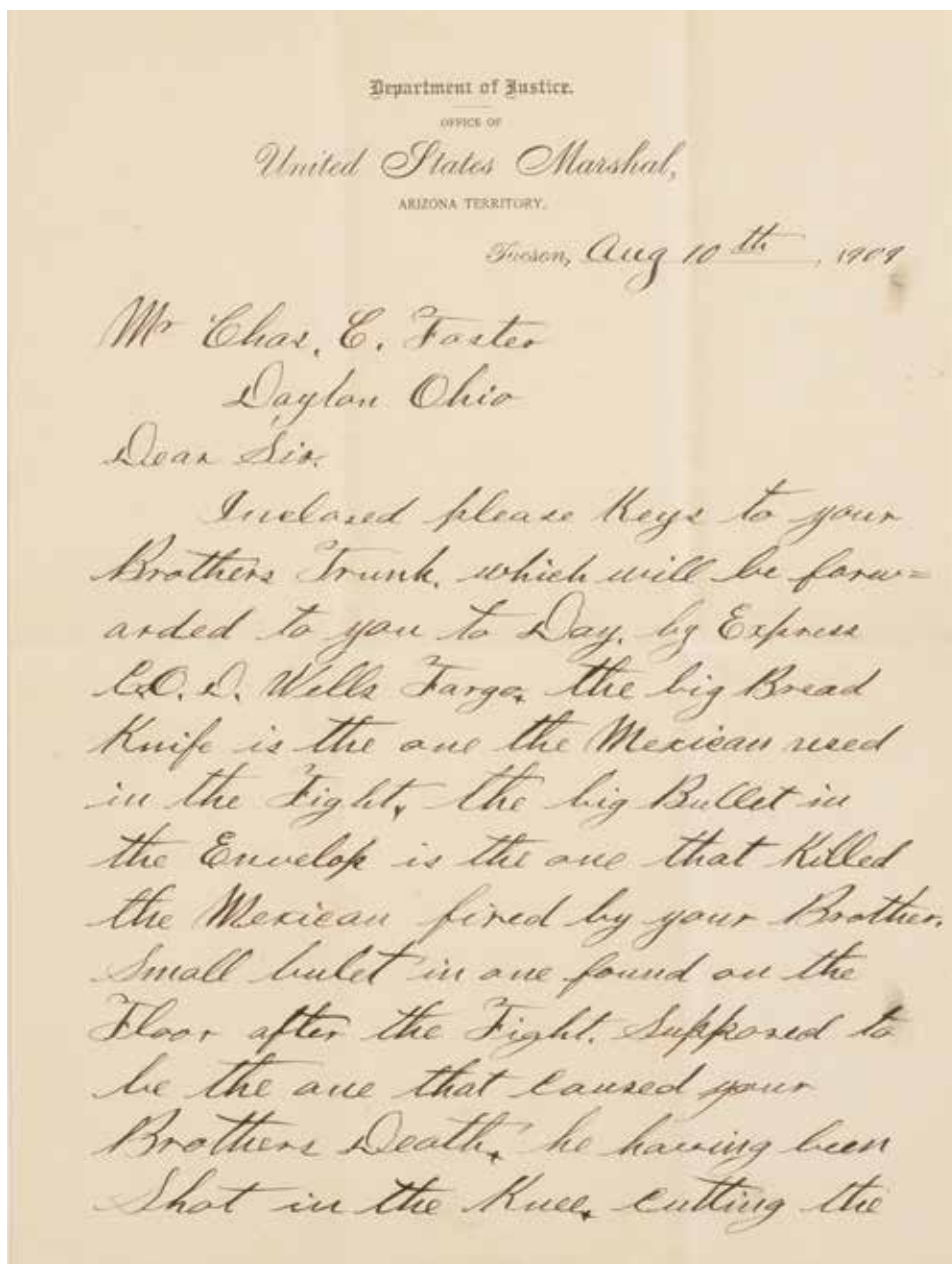 Department of Justice.
OFFICE OF
United States Marshal,
ARIZONA TERRITORY.
Tucson, Aug 10th, 1909
Mr Chas. E. Foster
Dayton Ohio
Dear Sir.
Inclosed please Keys to your
Brothers Trunk. which will be forw=
arded to you to Day. by Express
C.O.D. Wells Fargo. the big Bread
Knife is the one the Mexican used
in the Fight. the big Bullet in
the Envelop is the one that Killed
the Mexican fired by your Brother.
Small bulet in one found on the
Floor after the Fight. Supposed to
be the one that caused your
Brothers Death. he having been
Shot in the Knee. cutting the